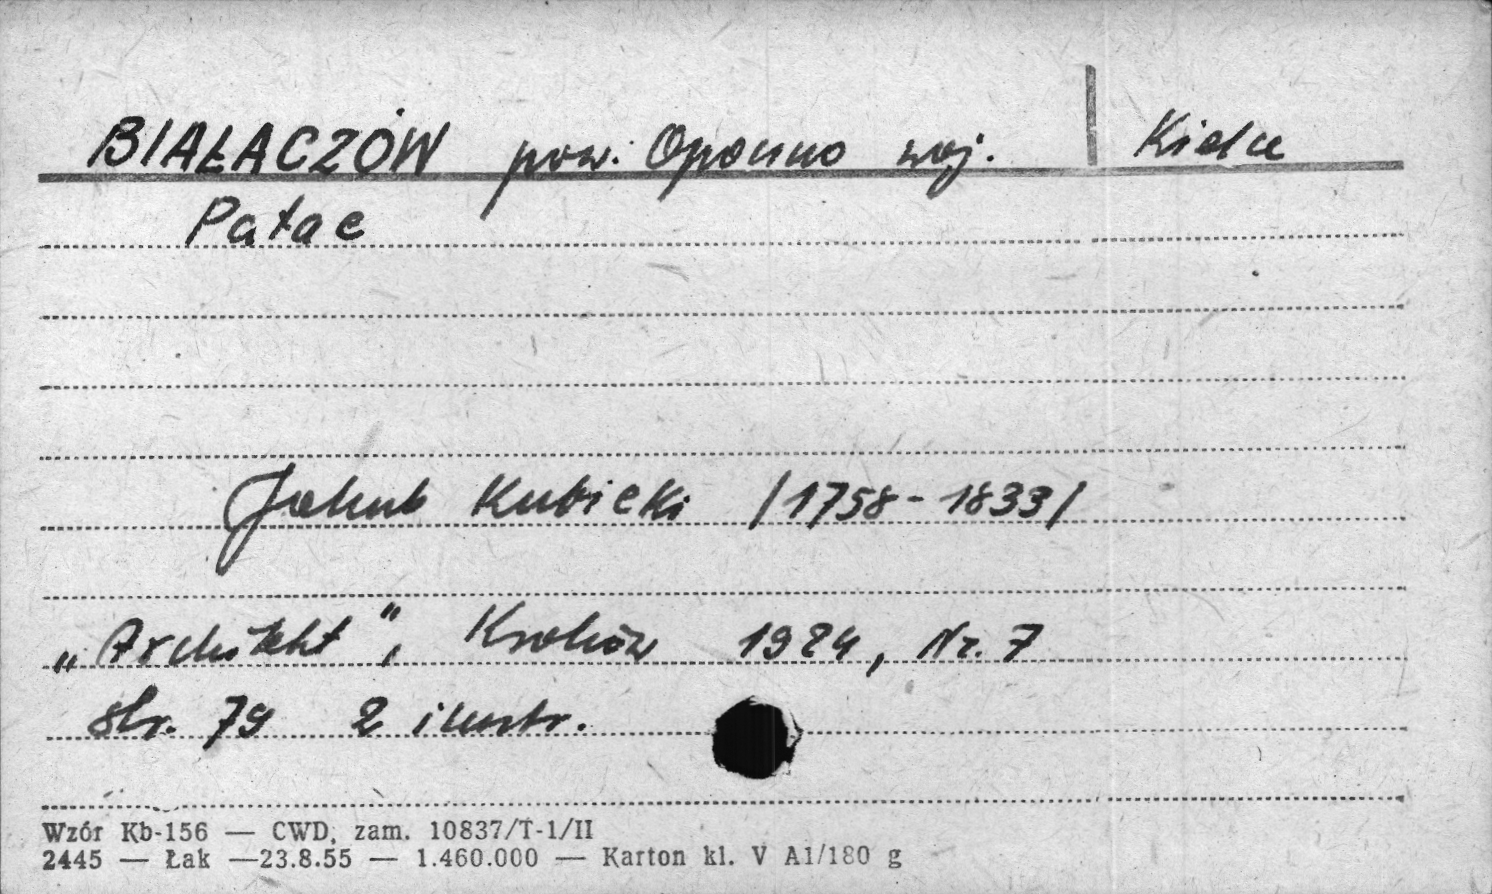 BIAŁACZÓW pow. Opoczno woj. Kielce
Pałac
Jakub Kubicki /1758-1833/
„Architekt”, Kraków 1924, Nr. 7
str. 79 2 ilustr.
Wzór Kb-156 — CWD, zam. 10837/T-1/II
2445 — Łak —23.8.55 — 1.460.000 — Karton kl. V A1/180 g